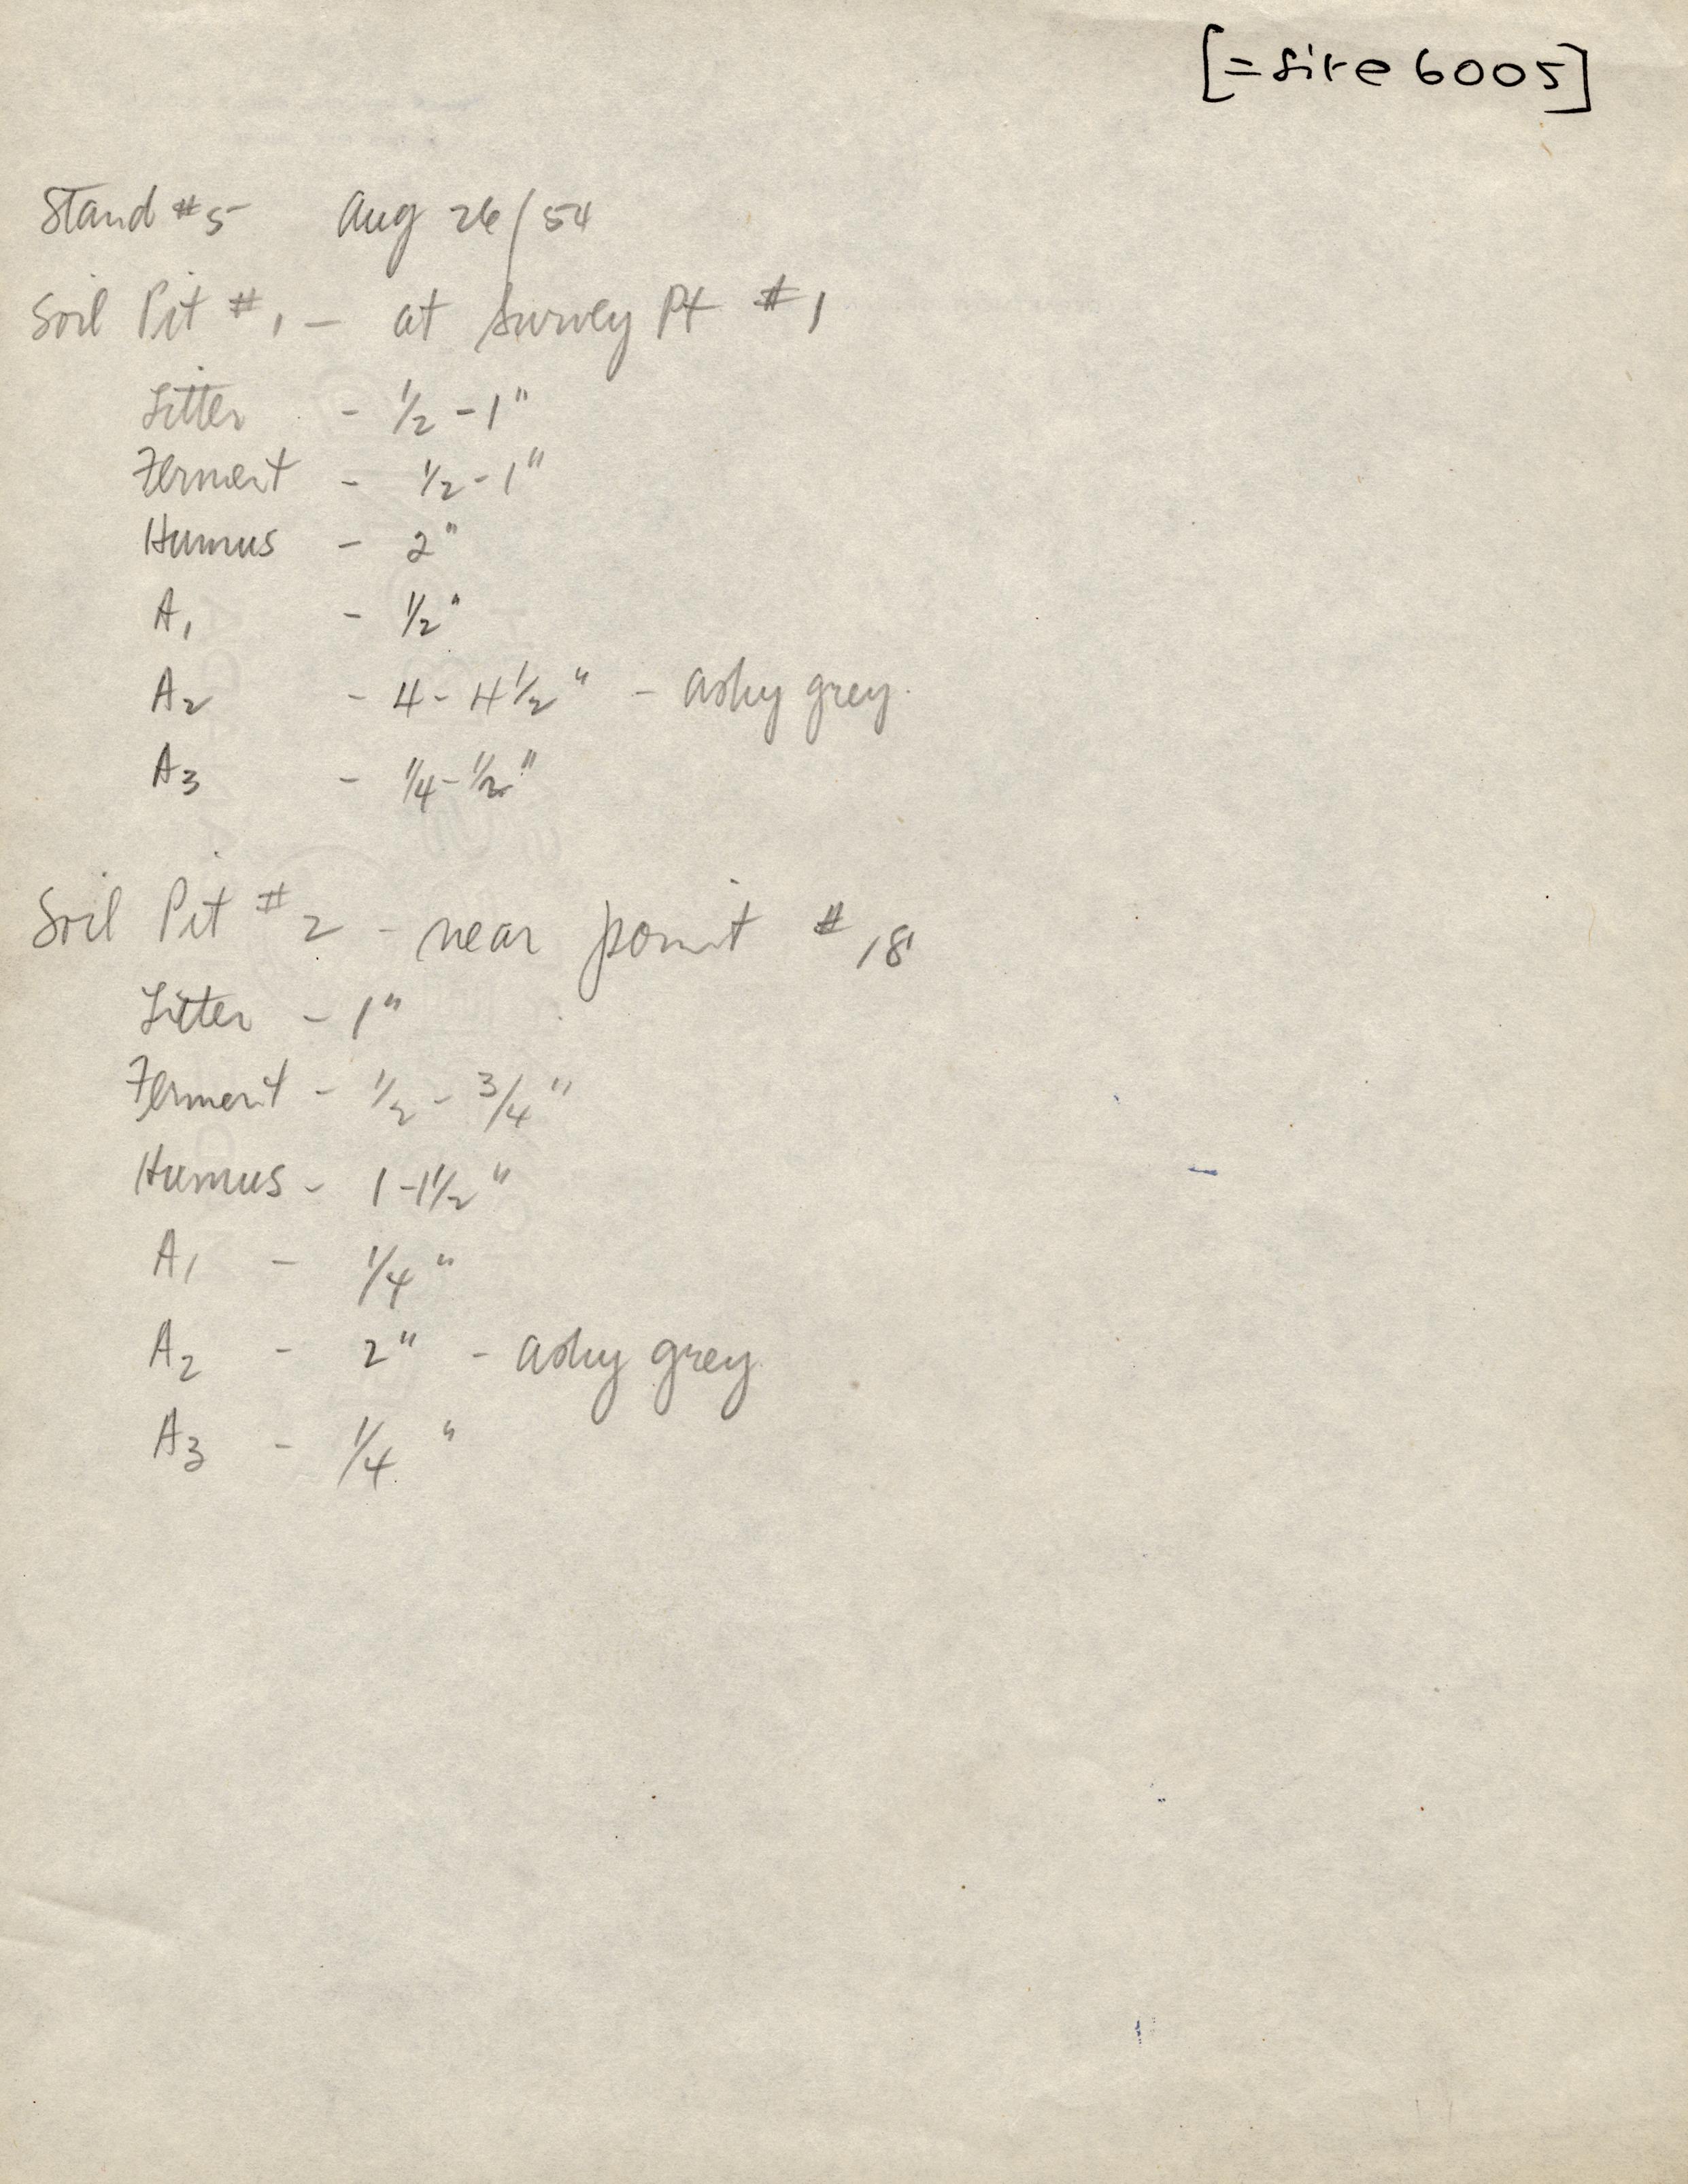 [= site 6005]
Stand #5 Aug 26/54
Soil Pit #1 - at survey Pt #1
Litter - 1/2 - 1"
Ferment - 1/2 - 1"
Humus - 2"
A1 - 1/2"
A2 - 4 - 4 1/2" - ashy grey
A3 - 1/4 - 1/2"
Soil Pit #2 - near point #18
Litter - 1"
Ferment - 1/2 - 3/4"
Humus - 1 - 1 1/2"
A1 - 1/4"
A2 - 2" - ashy grey
A3 - 1/4"